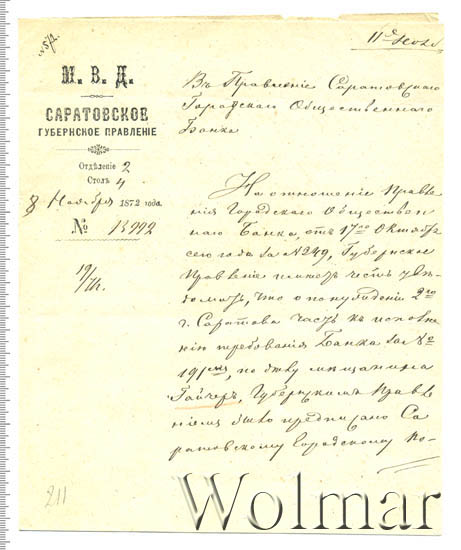 № 572.
11
М. В. Д.
САРАТОВСКОЕ
ГУБЕРНСКОЕ ПРАВЛЕНІЕ
Отдѣленіе 2
Столъ 4
8 Ноября 1872 года.
№ 13992
19/
211
Въ Правленіе Саратовскаго
Городскаго Общественнаго
Банка
На отношеніе Правле
нія Городскаго Обществен
наго Банка, отъ 17го Октября
сего года за № 249, Губернское
Правленіе имѣетъ честь увѣ
домить, что о понужденіи 2го
г. Саратова части къ исполне
нію требованія Банка за №
191, по дѣлу мѣщанина
Гайчеръ, Губернскимъ Правле
ніемъ было предписано Са
ратовскому Городскому По-
Wolmar